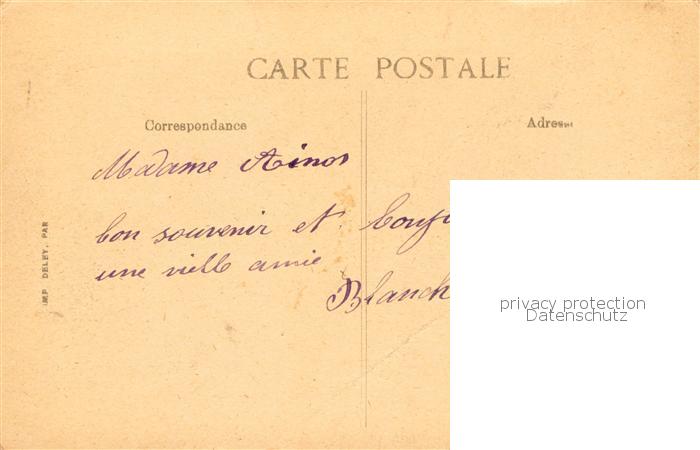 CARTE POSTALE
Correspondance
Adresse
Madame Ainos
bon souvenir et
une vielle amie
Blanch
IMP DELEY, PAR
privacy protection
Datenschutz